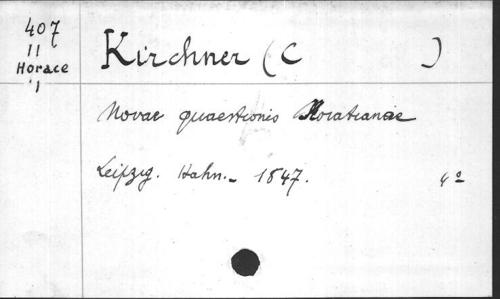 407
II
Horace
1
Kirchner (C )
Novae quaestionis Horatianae
Leipzig. Hahn. 1847.
4°